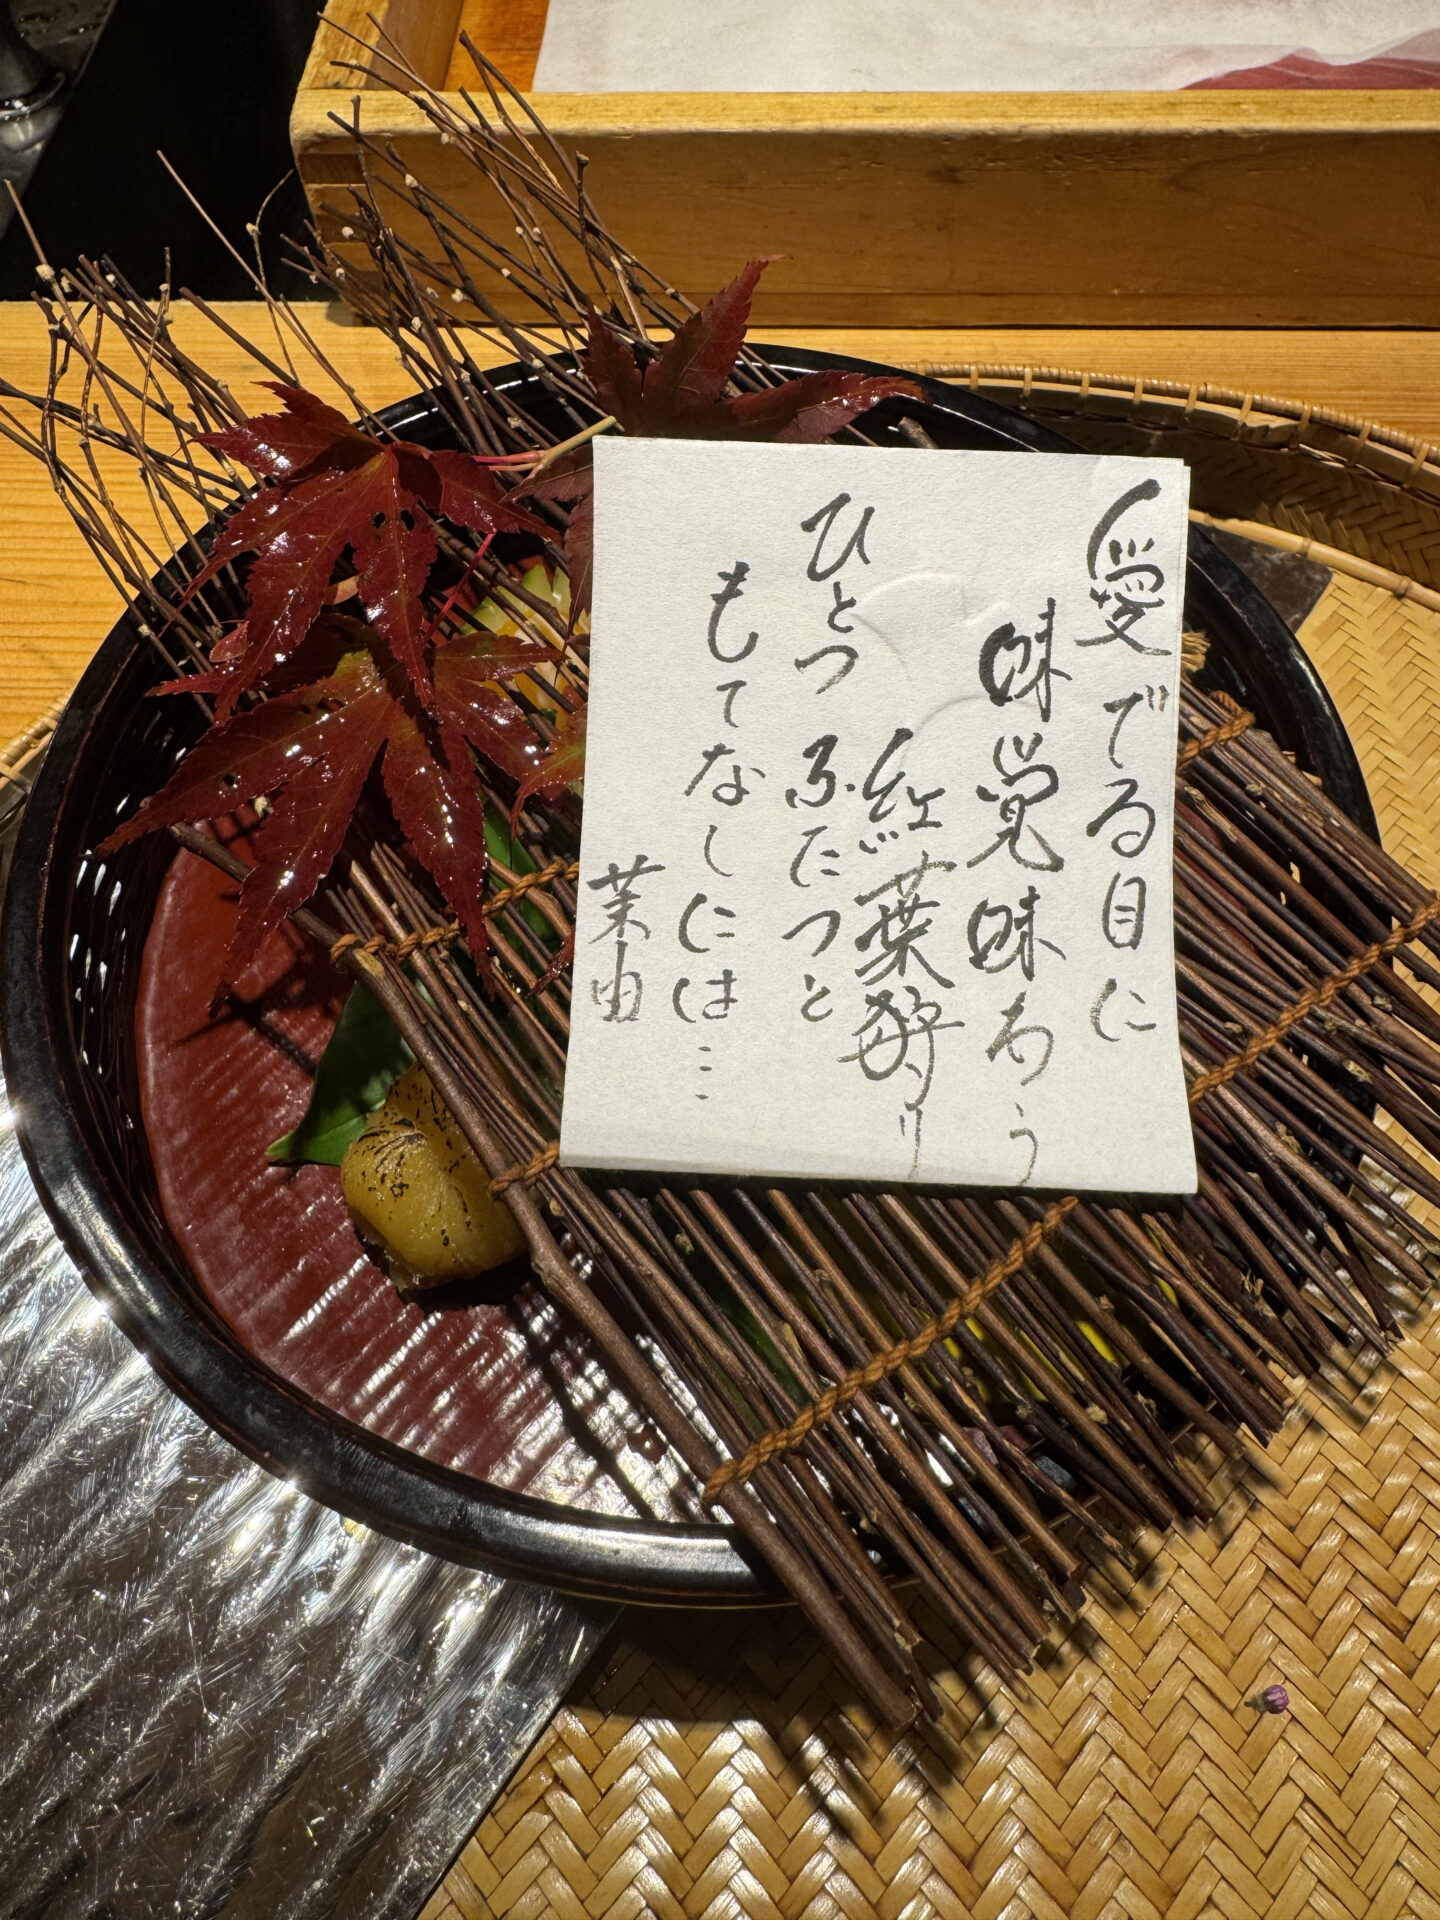 愛でる目に
味覚味わう
紅葉狩り
ひとつふたつと
もてなしには…
茉由